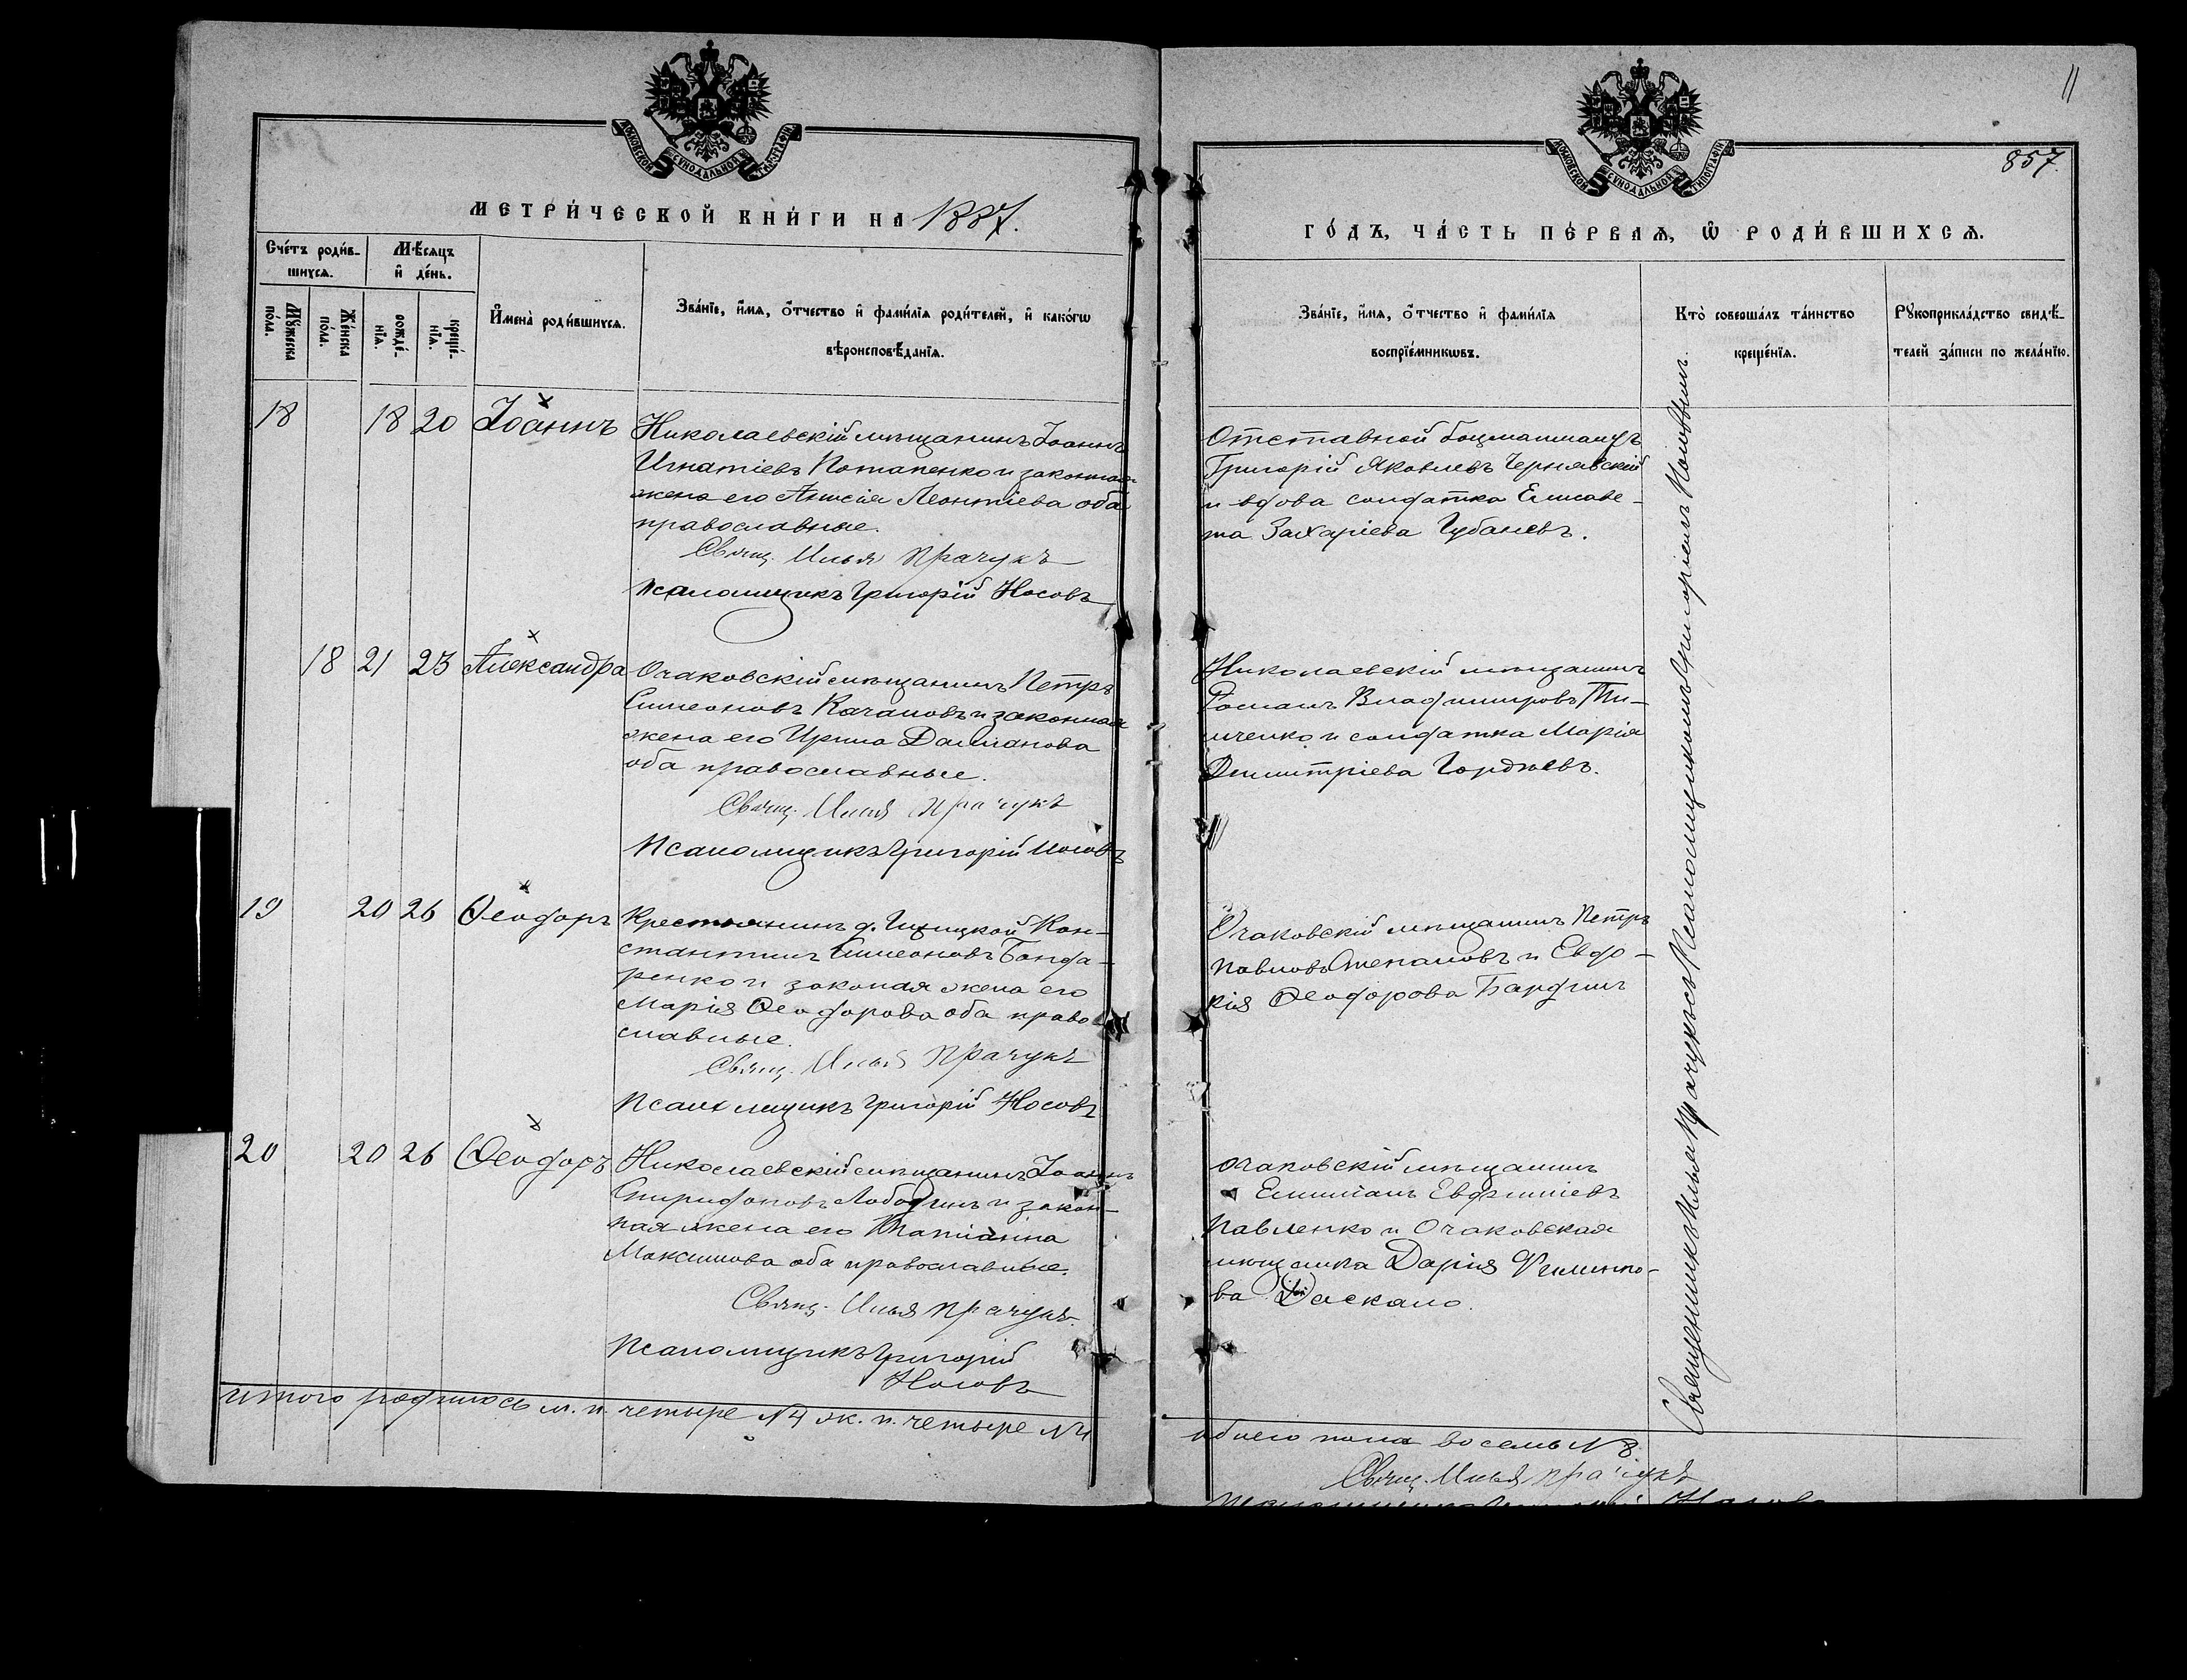 11
857.
МОСКОВСКОЙ СУНОДАЛЬНОЙ ТИПОГРАФІИ
МОСКОВСКОЙ СУНОДАЛЬНОЙ ТИПОГРАФІИ
МЕТРИ́ЧЕСКОЙ КНИ́ГИ НА 1887.
ГО́ДЪ, ЧА́СТЬ ПЕ́РВАЯ, Ѿ РОДИ́ВШИХСЯ.
Сче́тъ роди́в-
шихся.
Мѣ́сяцъ
и҆ де́нь.
Мꙋжеска
по́ла.
Же́нска
по́ла.
рожде́-
нїя.
креще́-
нїя.
И҆мена̀ роди́вшихся.
Зва́нїе, и҆́мя, ѻ҆́тчество и҆ фами́лїя роди́телей, и҆ како́гѡ
вѣроисповѣ́данїя.
Зва́нїе, и҆́мя, ѻ҆́тчество и҆ фами́лїя
воспрїе́мникѡвъ.
Кто̀ соверша́лъ та́инство
креще́нїя.
Рꙋкоприкла́дство свидѣ́-
телей за́писи по жела́нїю.
18 18 20 Іоаннъ
Николаевскій мѣщанинъ Іоаннъ
Игнатіевъ Потапенко и законная
жена его Анисія Леонтіева оба
православные.
Свящ. Илья Прачукъ
Псаломщикъ Григорій Носовъ
Отставной боцманматъ
Григорій Яковлевъ Чернявскій
и вдова солдатка Елисаве-
та Захаріева Губаневъ.
18 21 23 Александра
Очаковскій мѣщанинъ Петръ
Симеоновъ Качановъ и законная
жена его Ирина Даміанова
оба православные.
Свящ. Илья Прачукъ
Псаломщикъ Григорій Носовъ
Николаевскій мѣщанинъ
Романъ Владиміровъ Ти-
мченко и солдатка Марія
Димитріева Гордіевъ.
19 20 26 Ѳеодоръ
Крестьянинъ д. Кон-
стантинъ Симеоновъ Бонда-
ренко и законая жена его
Марія Ѳеодорова оба право-
славные.
Свящ. Илья Прачукъ
Псаломщикъ Григорій Носовъ
Очаковскій мѣщанинъ Петръ
Павловъ Степановъ и Евдо-
кія Ѳеодорова
20 20 26 Ѳеодоръ
Николаевскій мѣщанинъ Іоаннъ
Спиридоновъ Лободинъ и закон-
ная жена его Татіанна
Максимова оба православные.
Свящ. Илья Прачукъ.
Псаломщикъ Григорій
Носовъ
Очаковскій мѣщанинъ
Евфиміевъ
Павленко и Очаковская
мѣщанка Дарія Филиппо-
ва
Священникъ Илья Прачукъ съ Псаломщикомъ Григоріемъ Носовымъ.
итого родилось м. п. четыре №4 ж. п. четыре №4
обоего пола восемь №8.
Свящ. Илья Прачукъ